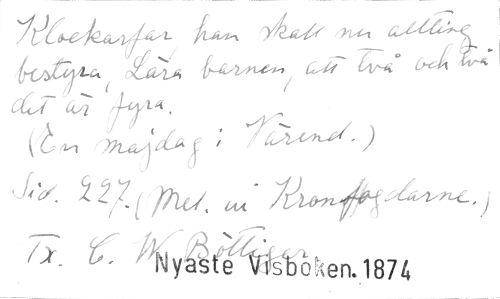 Klockarfar han skall nu allting
bestyra, Lära barnen, att två och två
det är fyra.
(En majdag i Värend.)
Sid. 227. (Mel. ur Kronfogdarne.)
Tx. C. W. Böttiger
Nyaste Visboken. 1874